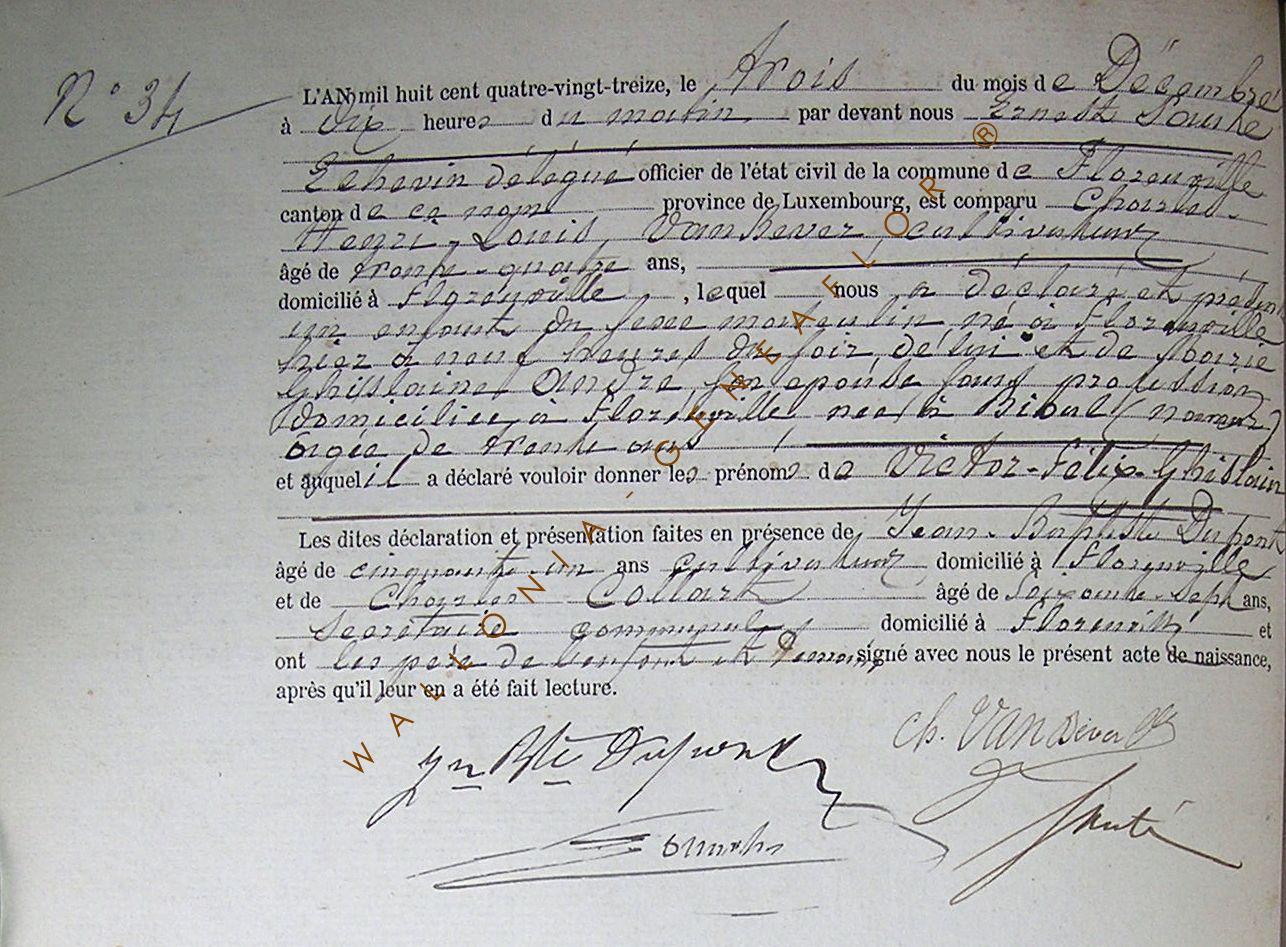 N° 34
L'AN mil huit cent quatre-vingt-treize, le trois du mois de Décembre
à dix heures du matin par devant nous Ernest
Echevin délégué officier de l'état civil de la commune de Florenville
canton de ce nom province de Luxembourg, est comparu Charles-
Henri-Louis, VanBever, cultivateur
âgé de trente-quatre ans,
domicilié à Florenville, lequel nous a déclaré et présenté
un enfant du sexe masculin né à Florenville
hier à neuf heures du soir, de lui et de Marie
Ghislaine André, son épouse sans profession
domiciliée à Florenville née à Bioul (Namur)
âgée de trente ans
et auquel il a déclaré vouloir donner les prénoms de Victor-Félix-Ghislain
Les dites déclaration et présentation faites en présence de Jean-Baptiste Dupont
âgé de cinquante-un ans cultivateur domicilié à Florenville
et de Charles Collart âgé de soixante-sept ans,
secrétaire communal domicilié à Florenville et
ont les père de l'enfant et témoins signé avec nous le présent acte de naissance,
après qu'il leur en a été fait lecture.
ch. VAN Bever
Jn Bte Dupont
WALLONIA-GENEAFLOR ®